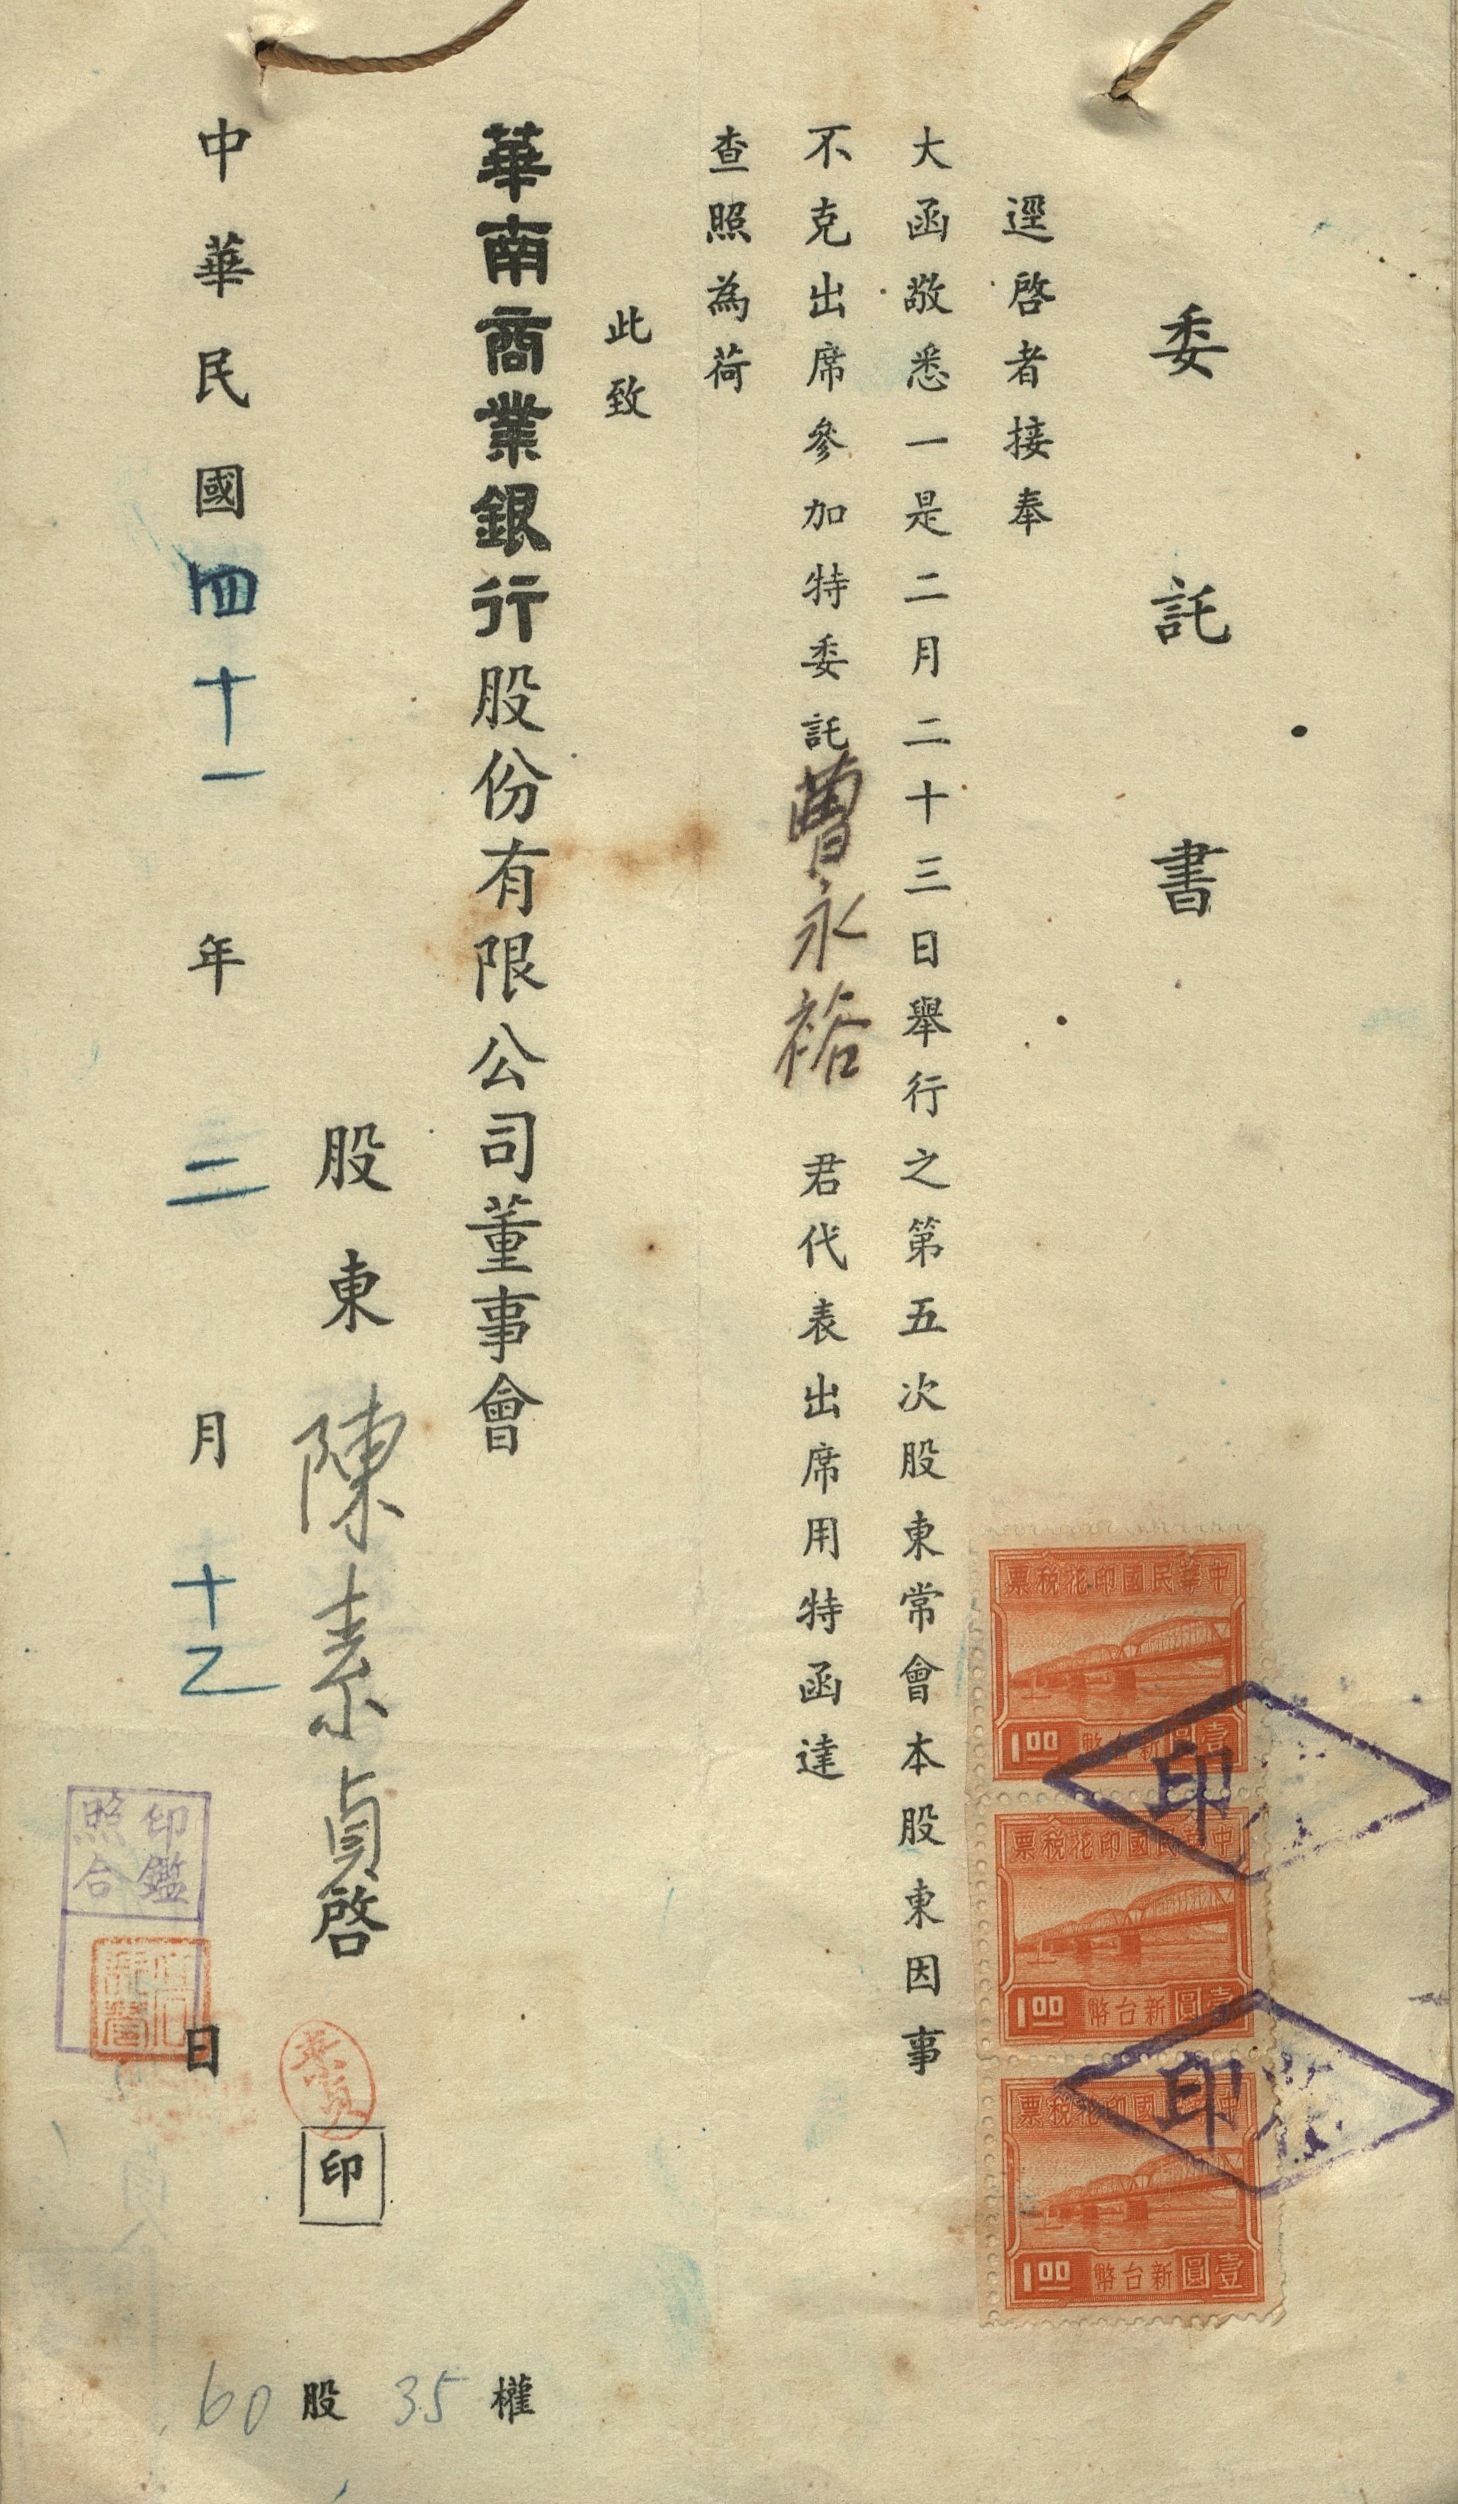 委託書
逕啓者接奉
大函敬悉一是二月二十三日舉行之第五次股東常會本股東因事
不克出席參加特委託曹永裕君代表出席用特函達
查照為荷
此致
華南商業銀行股份有限公司董事會
股東陳素貞啓
印
中華民國四十一年二月十乙日
60股35權
印鑑
照合
素貞
票稅花印國民華中
1.00 幣台新圓壹
票稅花印國民華中
1.00 幣台新圓壹
票稅花印國民華中
1.00 幣台新圓壹
印
印花